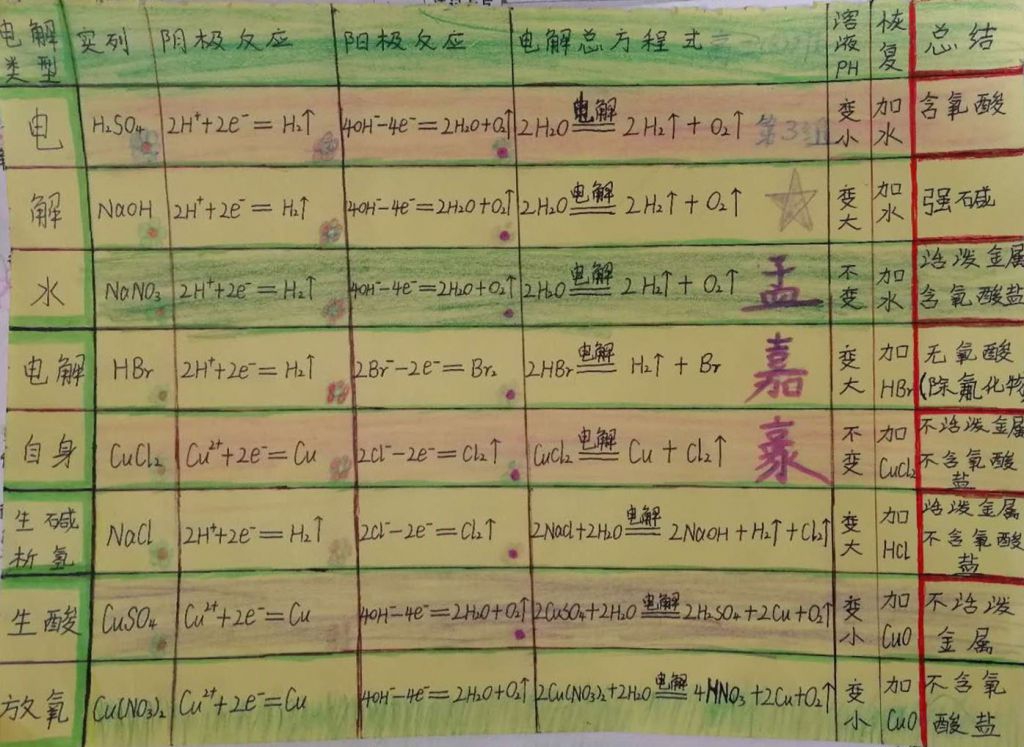 电解类型 实列 阴极反应 阳极反应 电解总方程式 溶液PH 恢复 总结
电 H₂SO₄ 2H⁺+2e⁻=H₂↑ 4OH⁻-4e⁻=2H₂O+O₂↑ 2H₂O 电解 2H₂↑+O₂↑ 第3组 变小 加水 含氧酸
解 NaOH 2H⁺+2e⁻=H₂↑ 4OH⁻-4e⁻=2H₂O+O₂↑ 2H₂O 电解 2H₂↑+O₂↑ 变大 加水 强碱
水 NaNO₃ 2H⁺+2e⁻=H₂↑ 4OH⁻-4e⁻=2H₂O+O₂↑ 2H₂O 电解 2H₂↑+O₂↑ 孟 不变 加水 活泼金属含氧酸盐
电解 HBr 2H⁺+2e⁻=H₂↑ 2Br⁻-2e⁻=Br₂ 2HBr 电解 H₂↑+Br 嘉 变大 加HBr 无氧酸(除氟化物
自身 CuCl₂ Cu²⁺+2e⁻=Cu 2Cl⁻-2e⁻=Cl₂↑ CuCl₂ 电解 Cu+Cl₂↑ 不变 加CuCl₂ 不活泼金属不含氧酸盐
生碱析氢 NaCl 2H⁺+2e⁻=H₂↑ 2Cl⁻-2e⁻=Cl₂↑ 2NaCl+2H₂O 电解 2NaOH+H₂↑+Cl₂↑ 变大 加HCl 活泼金属不含氧酸盐
生酸 CuSO₄ Cu²⁺+2e⁻=Cu 4OH⁻-4e⁻=2H₂O+O₂↑ 2CuSO₄+2H₂O 电解 2H₂SO₄+2Cu+O₂↑ 变小 加CuO 不活泼金属
放氧 Cu(NO₃)₂ Cu²⁺+2e⁻=Cu 4OH⁻-4e⁻=2H₂O+O₂↑ 2Cu(NO₃)₂+2H₂O 电解 4HNO₃+2Cu+O₂↑ 变小 加CuO 不含氧酸盐